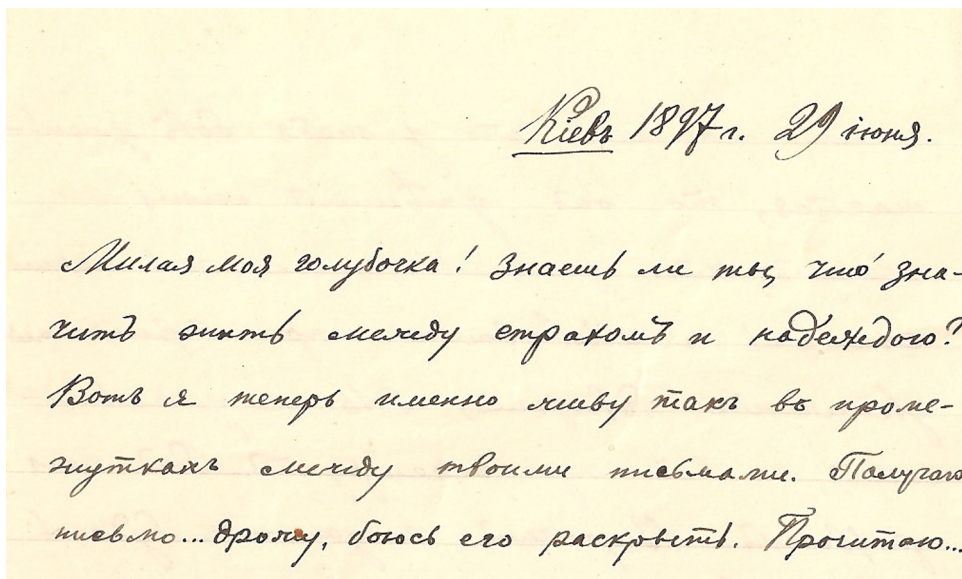 Кіевъ 1897 г. 29 іюня.
Милая моя голубочка! Знаешь ли ты, что́ зна-
читъ жить между страхомъ и надеждою?
Вотъ я теперь именно живу такъ въ проме-
жуткахъ между твоими письмами. Получаю
письмо... дрожу, боюсь его раскрыть. Прочитаю...